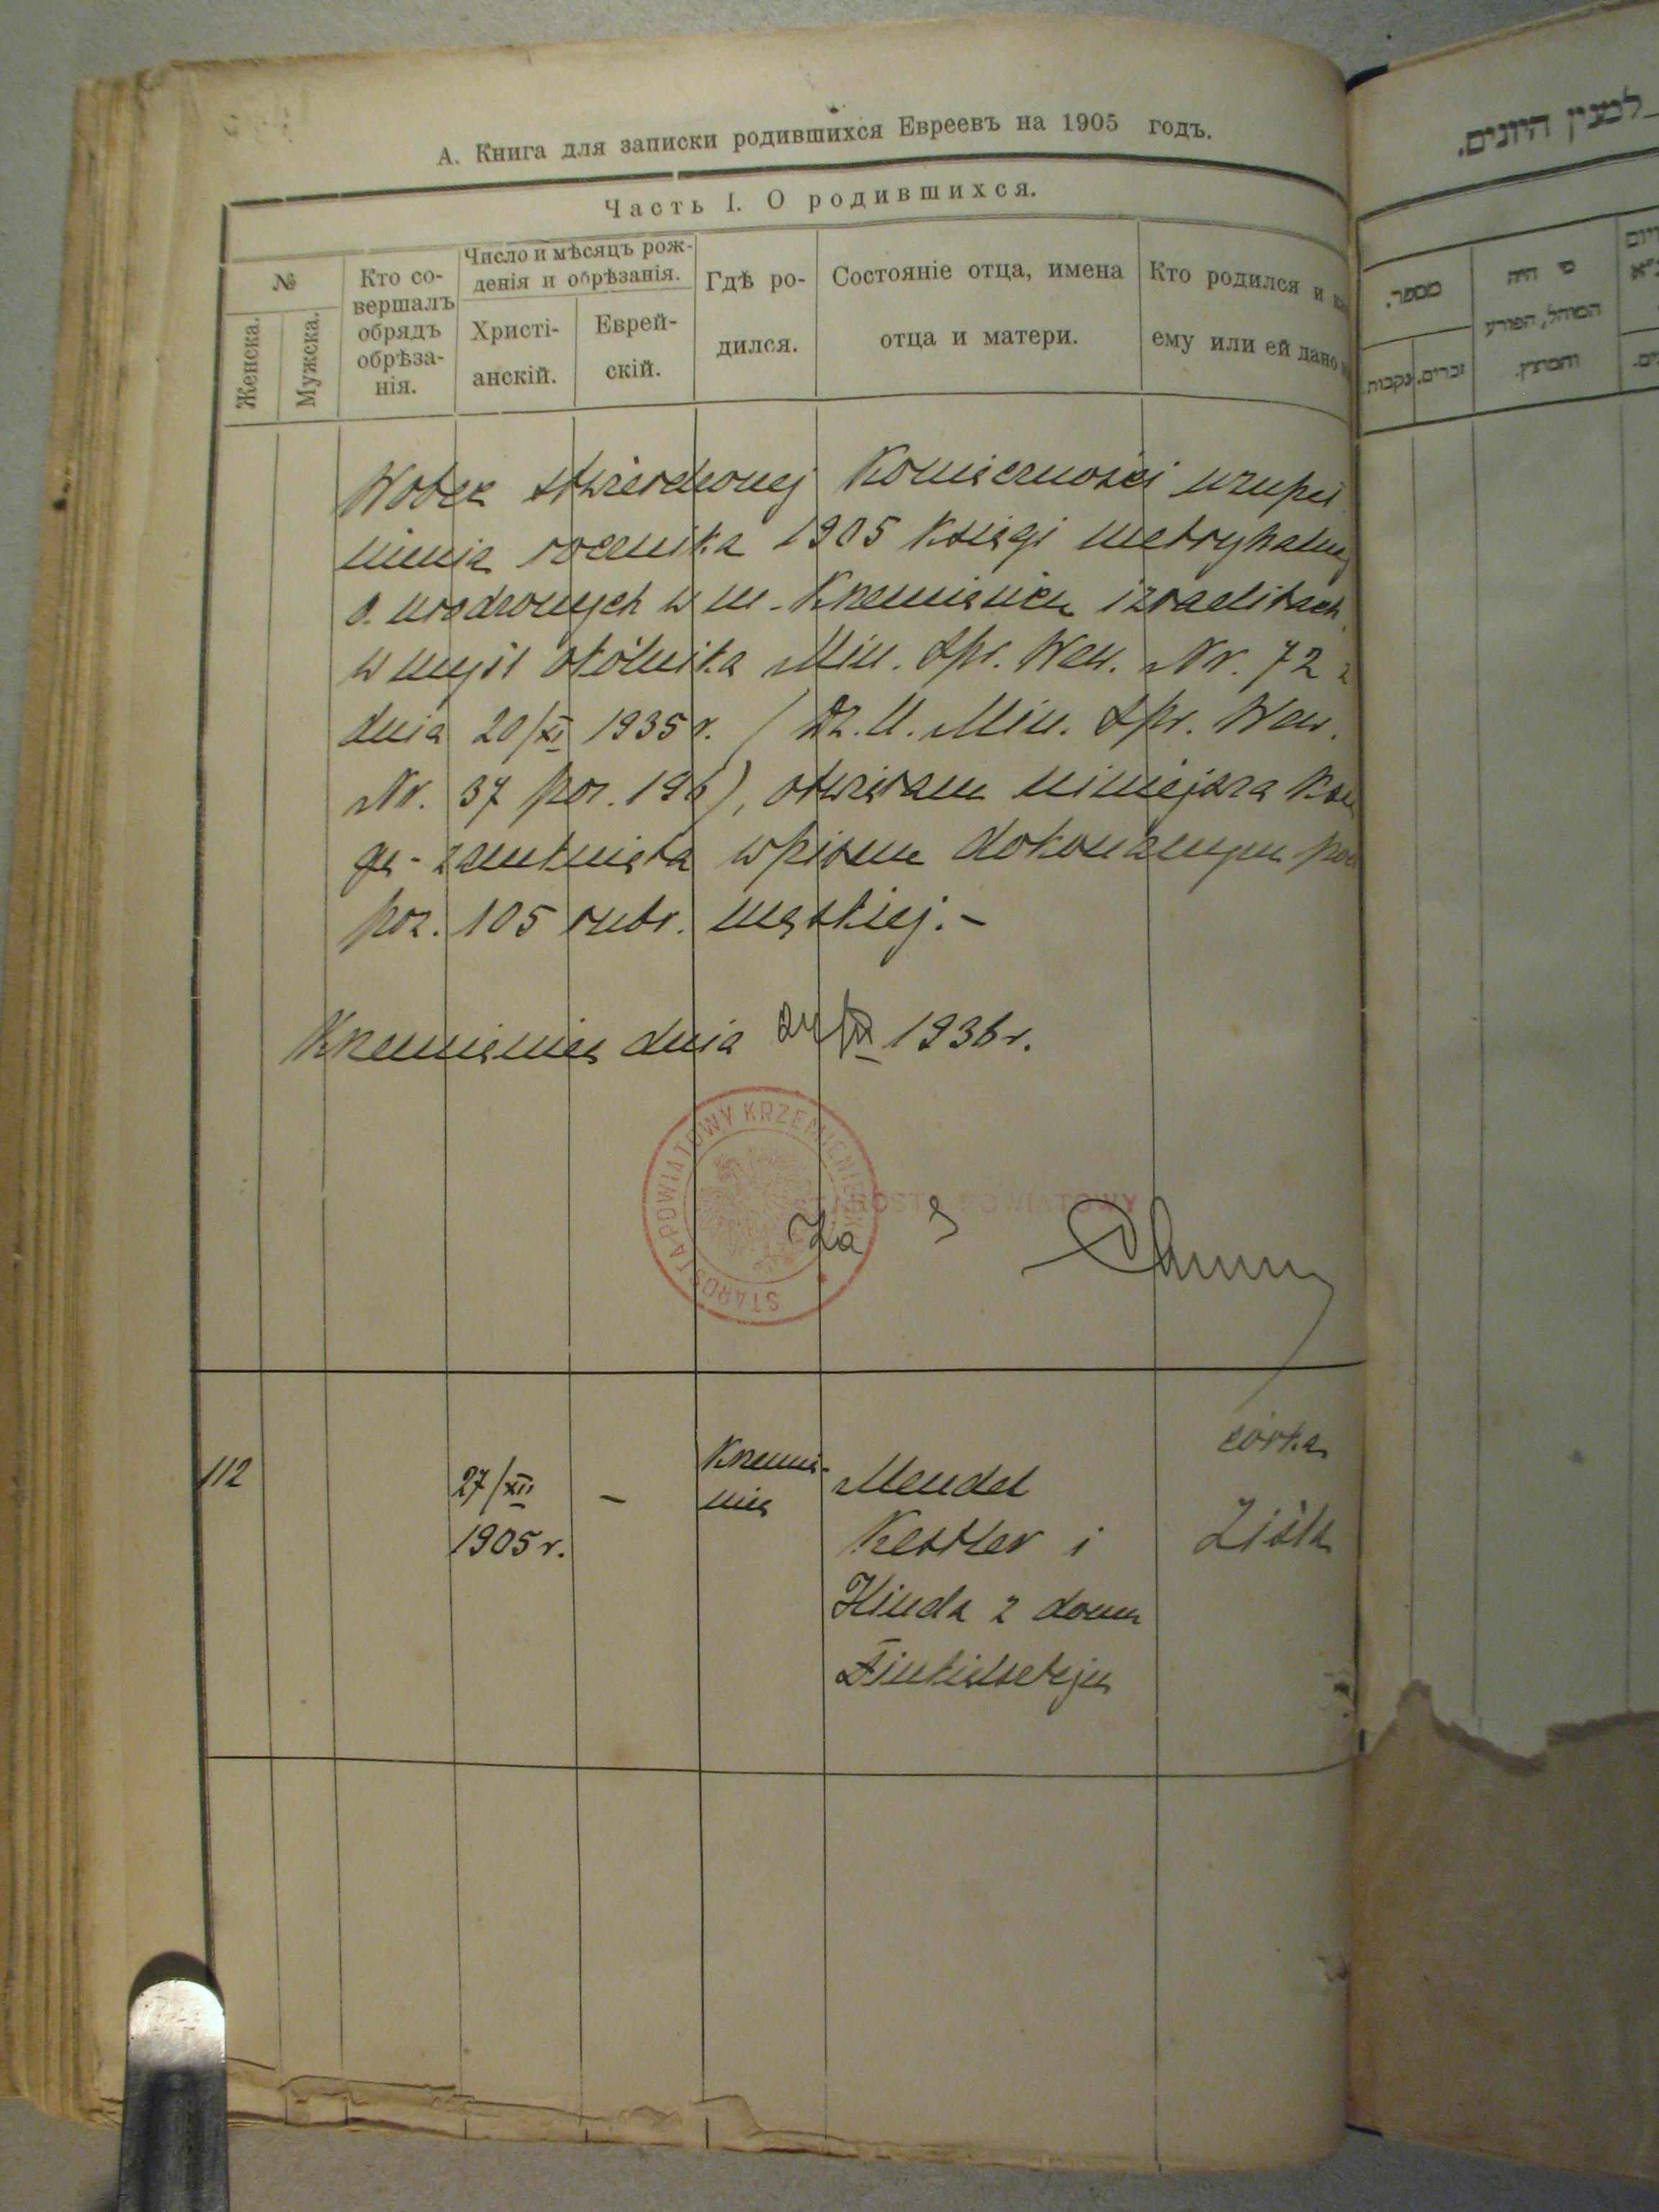 А. Книга для записки родившихся Евреевъ на 1905 годъ.
Часть I. О родившихся.
№
Женска.
Мужска.
Кто со-
вершалъ
обрядъ
обрѣза-
нія.
Число и мѣсяцъ рож-
денія и обрѣзанія.
Христі-
анскій.
Еврей-
скій.
Гдѣ ро-
дился.
Состояніе отца, имена
отца и матери.
Кто родился и
ему или ей дано
Wobec stwierdzonej konieczności uzupeł
nienia rocznika 1905 księgi metrykalnej
o urodzonych w m. Krzemieńcu izraelitach,
w myśl okólnika Min. Spr. Wew. Nr. 72 z
dnia 20/XI 1935 r. (Dz. U. Min. Spr. Wew.
Nr. 37 poz. 196), otwieram niniejszą księ
gę - zamkniętą wpisem dokonanym pod
poz. 105 rubr. męskiej. -
Krzemieniec dnia 1936 r.
STAROSTA POWIATOWY KRZEMIENIECKI
STAROSTA POWIATOWY
Za
112
27/XII
1905 r.
-
Krzemie-
niec
Mendel
Kestler i
Hinda z domu
córka
Ziśla
מספר.
זכרים.
נקבות
מי היה
המוהל, הפורע
והמוצץ.